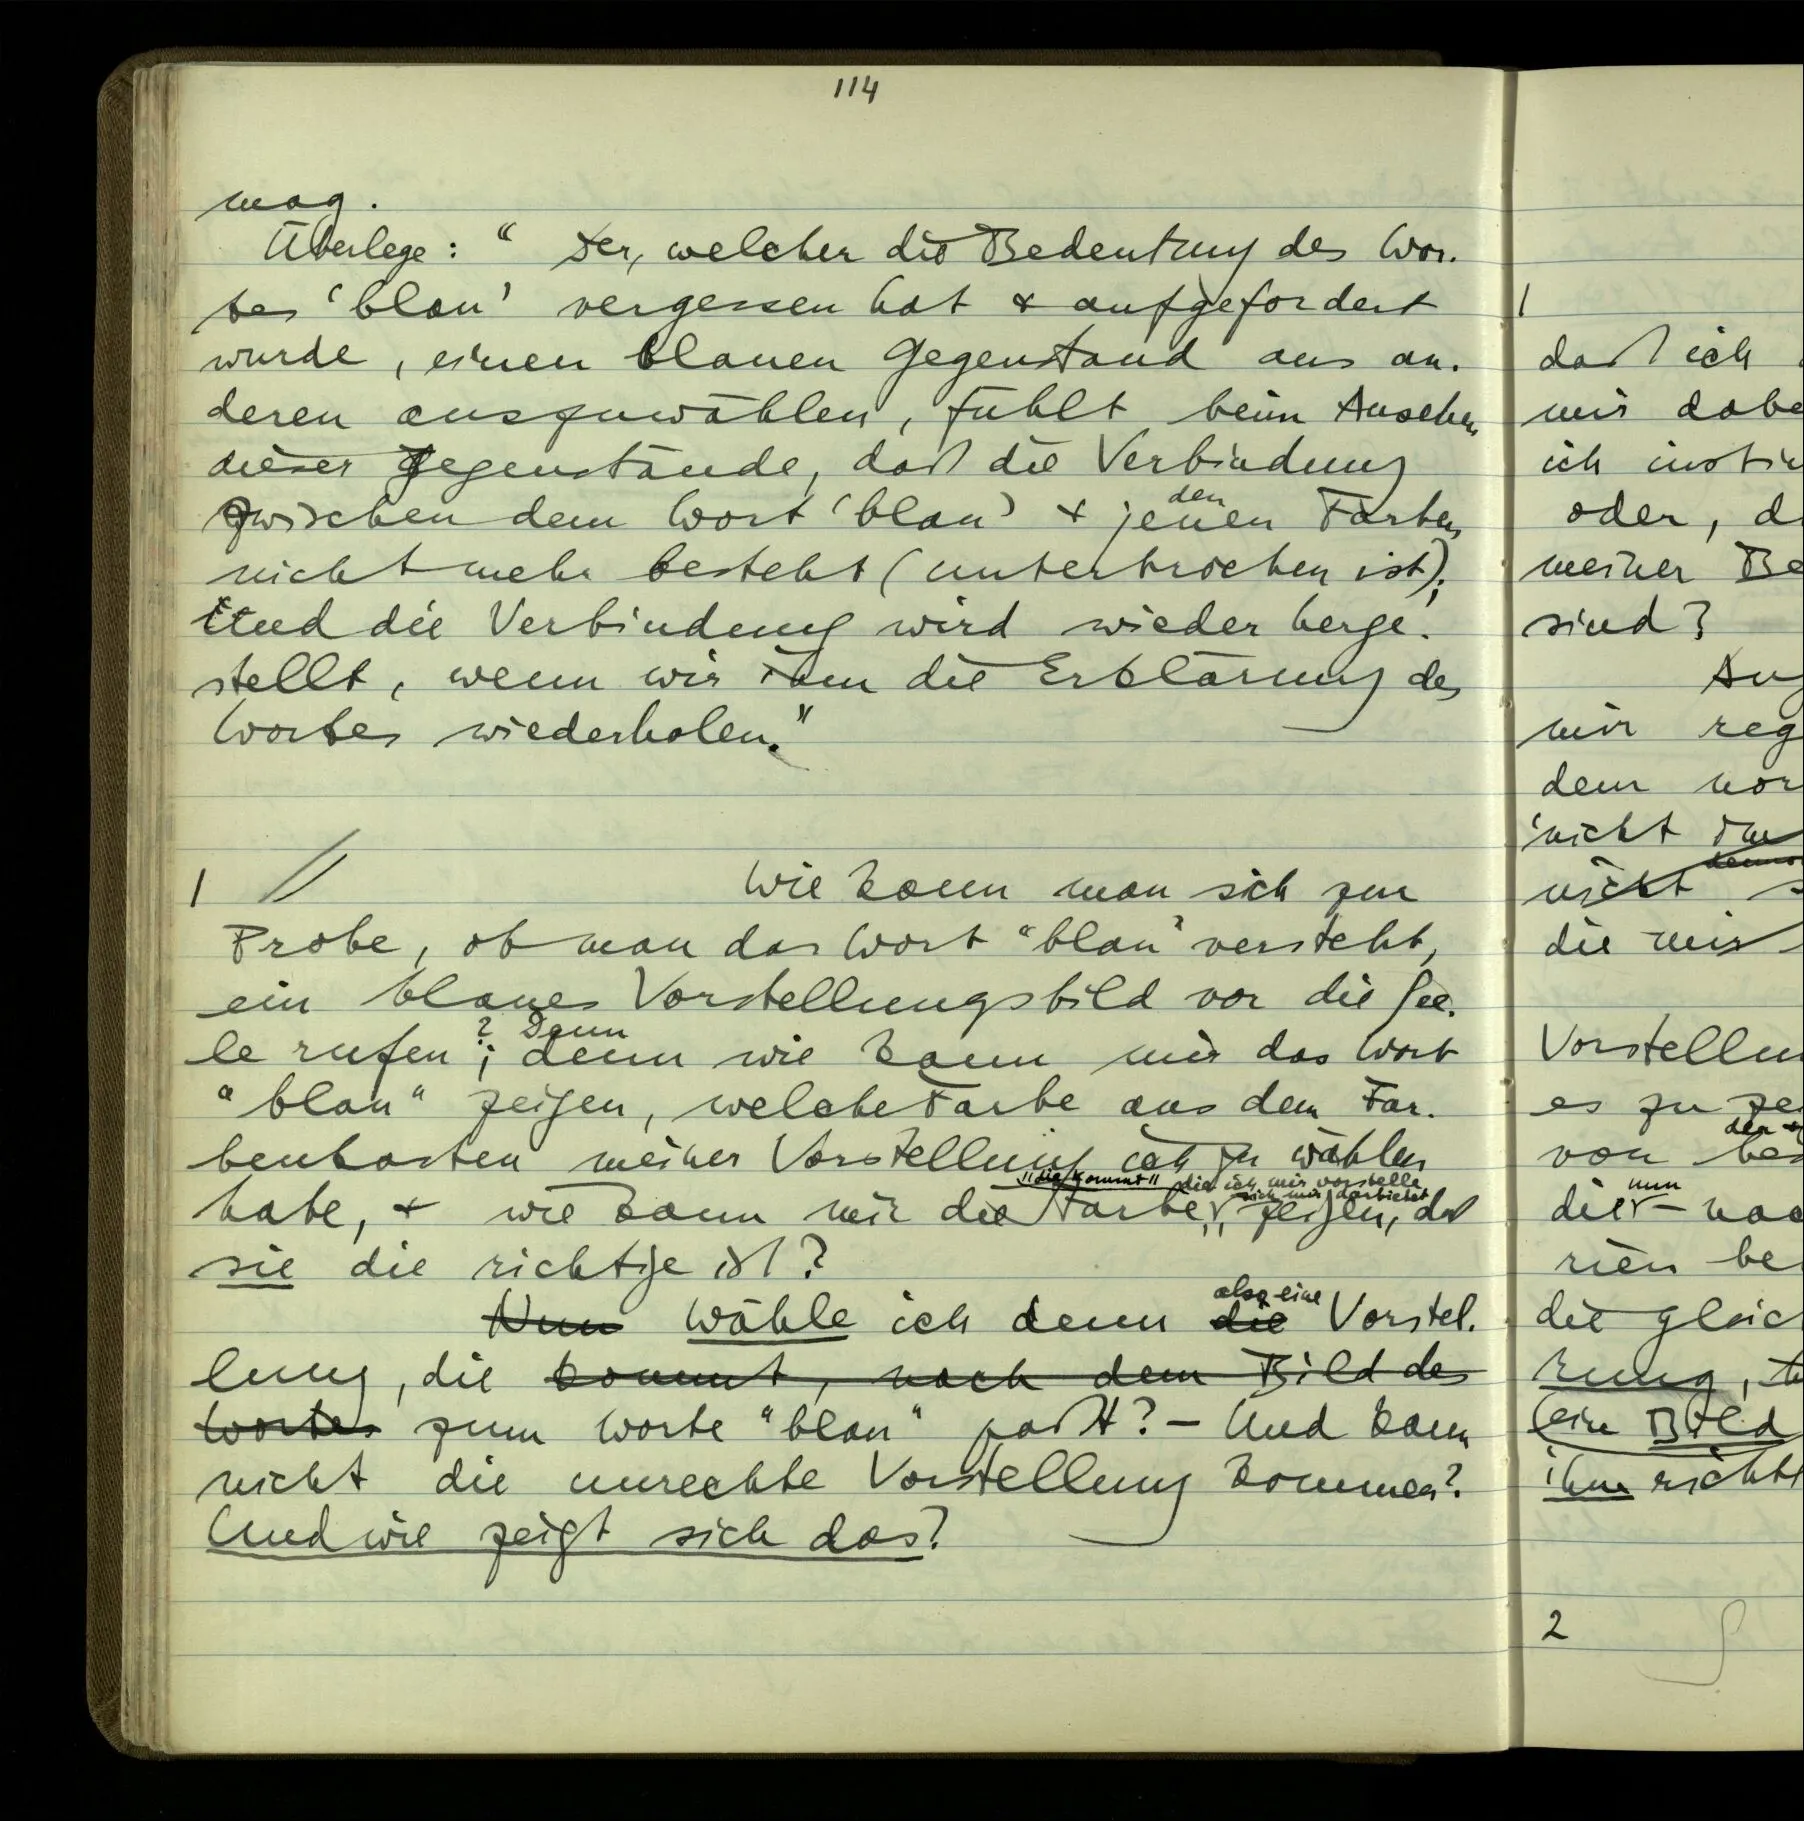 114
mag.
Überlege: “Der, welcher die Bedeutung des Wor-
tes ‘blau’ vergessen hat & aufgefordert
wurde, einen blauen Gegenstand aus an-
deren auszuwählen, fühlt beim Ansehen
dieser Gegenstände, daß die Verbindung
den
zwischen dem Wort ‘blau’ & jenen Farben
nicht mehr besteht (unterbrochen ist);
und die Verbindung wird wieder herge-
stellt, wenn wir ihm die Erklärung des
Wortes wiederholen.”
1 // Wie kann man sich zur
Probe, ob man das Wort “blau” versteht,
ein blaues Vorstellungsbild vor die See-
? Denn
le rufen; denn wie kann mir das Wort
“blau” zeigen, welche Farbe aus dem Far-
benkasten meiner Vorstellung ich zu wählen
“die kommt” die ich mir vorstelle
sich mir darbietet
habe, & wie kann mir die Farbe, zeigen, daß
sie die richtige ist?
also eine
Nun Wähle ich denn die Vorstel-
lung, die kommt, nach dem Bild des
Wortes zum Worte “blau” paßt? – Und kann
nicht die unrechte Vorstellung kommen?
Und wie zeigt sich das?
1
daß ich
mir dabe
ich instin
oder, d
meiner Be
sind?
mir reg
dem vor
nicht
nicht
die mir
Vorstellun
es zu ze
von
nun
die –
rien be
die gleic
kung, 
(ein Bild
ihm richt
2